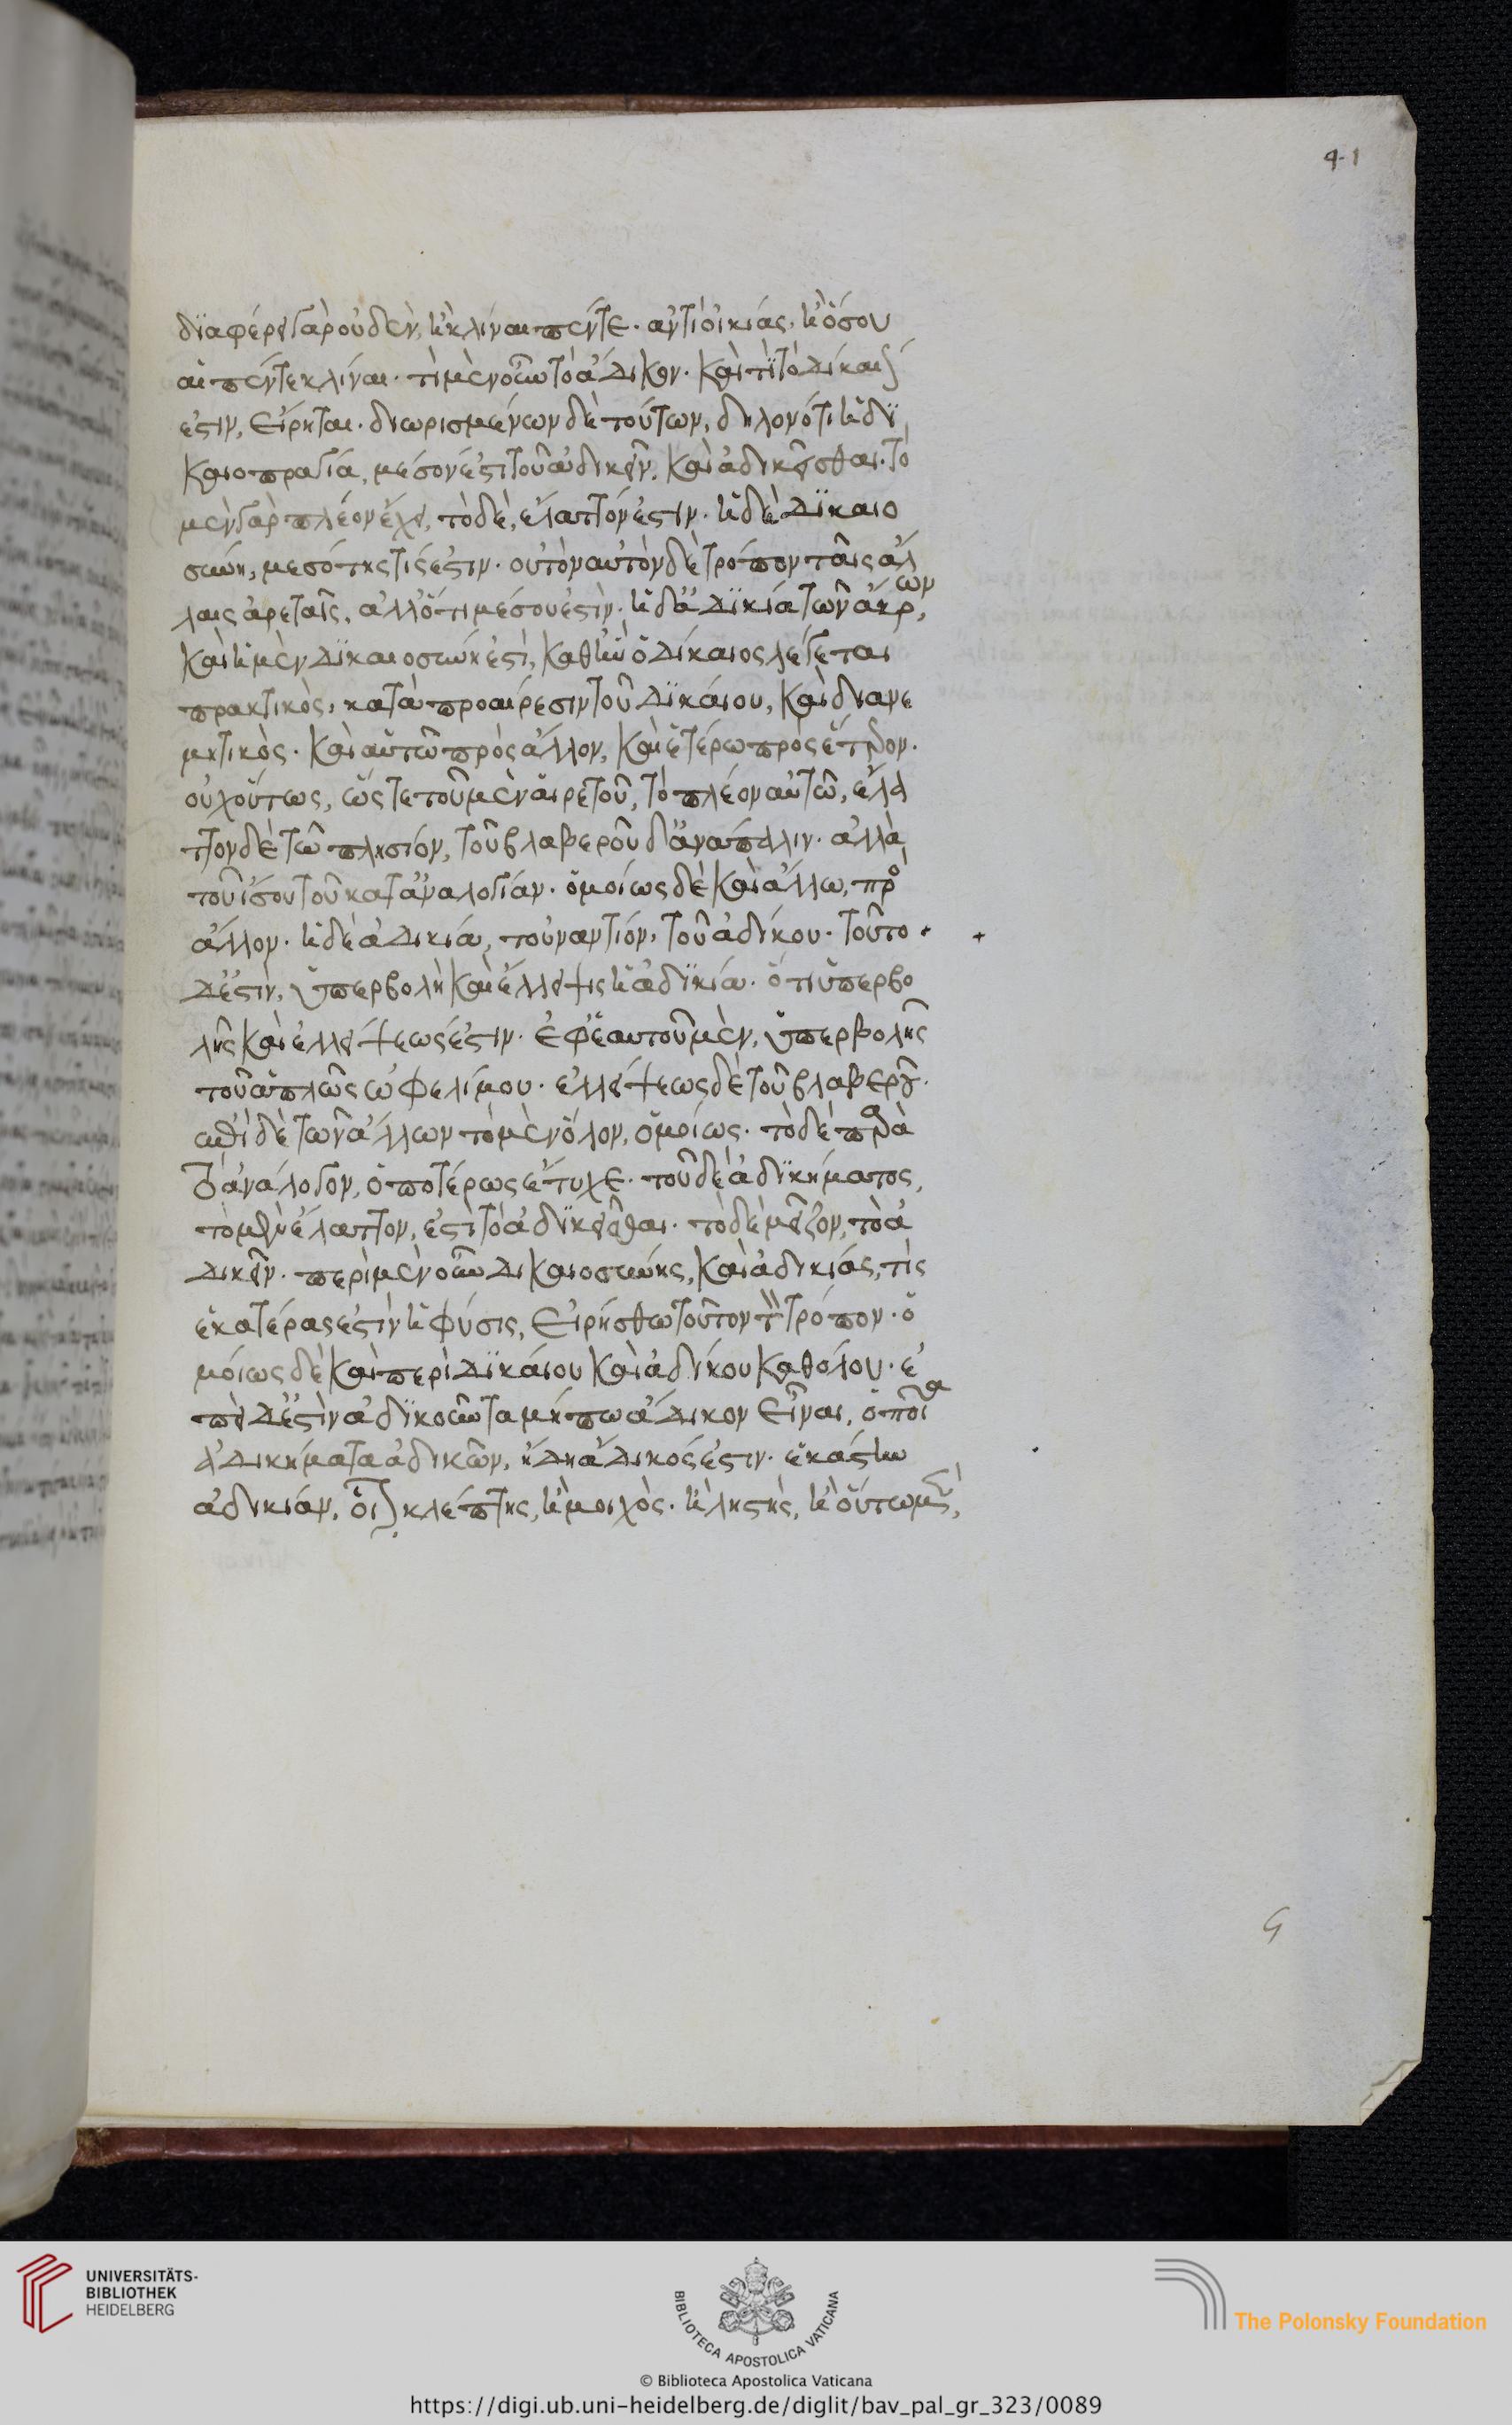 41
διαφέρει γὰρ οὐδὲν, ἢ κλίναι πέντε· ἀντὶ οἰκίας, ἢ ὅσου
αἱ πέντε κλίναι· τὶ μὲν οὖν τὸ ἄδικον· καὶ τί τὸ δίκαιόν
ἐστιν, εἴρηται· διωρισμένων δὲ τούτων, δῆλον ὅτι ἡ δι
καιοπραγία, μέσον ἐστὶ τοῦ ἀδικεῖν, καὶ ἀδικεῖσθαι· τὸ
μὲν γὰρ πλέον ἔχει, τὸ δὲ, ἔλαττόν ἐστιν· ἡ δὲ δικαιο
σύνη, μεσότης τίς ἐστιν· οὐ τὸν αὐτὸν δὲ τρόπον ταῖς ἄλ
λαις ἀρεταῖς, ἀλλ' ὅτι μέσου ἐστὶν· ἡ δ' ἀδικία τῶν ἄκρων,
καὶ ἡ μὲν δικαιοσύνη ἐστὶ, καθ' ἣν ὁ δίκαιος λέγεται
πρακτικὸς, κατὰ προαίρεσιν τοῦ δικαίου, καὶ διανε
μητικὸς· καὶ αὑτῷ πρὸς ἄλλον, καὶ ἑτέρῳ πρὸς ἕτερον·
οὐχ οὕτως, ὥστε τοῦ μὲν αἱρετοῦ, τὸ πλέον αὑτῷ, ἔλα
ττον δὲ τῷ πλησίον, τοῦ βλαβεροῦ δ' ἀνάπαλιν· ἀλλὰ
τοῦ ἴσου τοῦ κατ' ἀναλογίαν· ὁμοίως δὲ καὶ ἄλλῳ, πρὸ
ἄλλον· ἡ δὲ ἀδικία, τοὐναντίον, τοῦ ἀδίκου· τοῦτο
δ' ἐστὶν, ὑπερβολὴ καὶ ἔλλειψις ἡ ἀδικία· ὅτι ὑπερβο
λῆς καὶ ἐλλείψεως ἐστιν· ἐφ' ἑαυτοῦ μὲν, ὑπερβολῆς
τοῦ ἁπλῶς ὠφελίμου· ἐλλείψεως δὲ τοῦ βλαβεροῦ·
ἐπὶ δὲ τῶν ἄλλων τὸ μὲν ὅλον, ὁμοίως· τὸ δὲ παρὰ
τὸ ἀνάλογον, ὁποτέρως ἔτυχε· τοῦ δὲ ἀδικήματος,
τὸ μὲν ἔλαττον, ἐστὶ τὸ ἀδικεῖσθαι· τὸ δὲ μεῖζον, τὸ ἀ
δικεῖν· περὶ μὲν οὖν δικαιοσύνης, καὶ ἀδικίας, τίς
ἑκατέρας ἐστὶν ἡ φύσις, εἰρήσθω τοῦτον τὸν τρόπον· ὁ
μοίως δὲ καὶ περὶ δικαίου καὶ ἀδίκου καθόλου· ἐ
πεὶ δ' ἐστὶν ἀδικοῦντα μήπω ἄδικον εἶναι, ὁ ποῖα
ἀδικήματα ἀδικῶν, ἤδη ἄδικός ἐστιν· ἑκάστην
ἀδικίαν, οἷον κλέπτης, ἢ μοιχὸς· ἢ λῃστὴς, ἢ οὕτω μὲν,
UNIVERSITÄTS-
BIBLIOTHEK
HEIDELBERG
BIBLIOTECA APOSTOLICA VATICANA
The Polonsky Foundation
© Biblioteca Apostolica Vaticana
https://digi.ub.uni-heidelberg.de/diglit/bav_pal_gr_323/0089